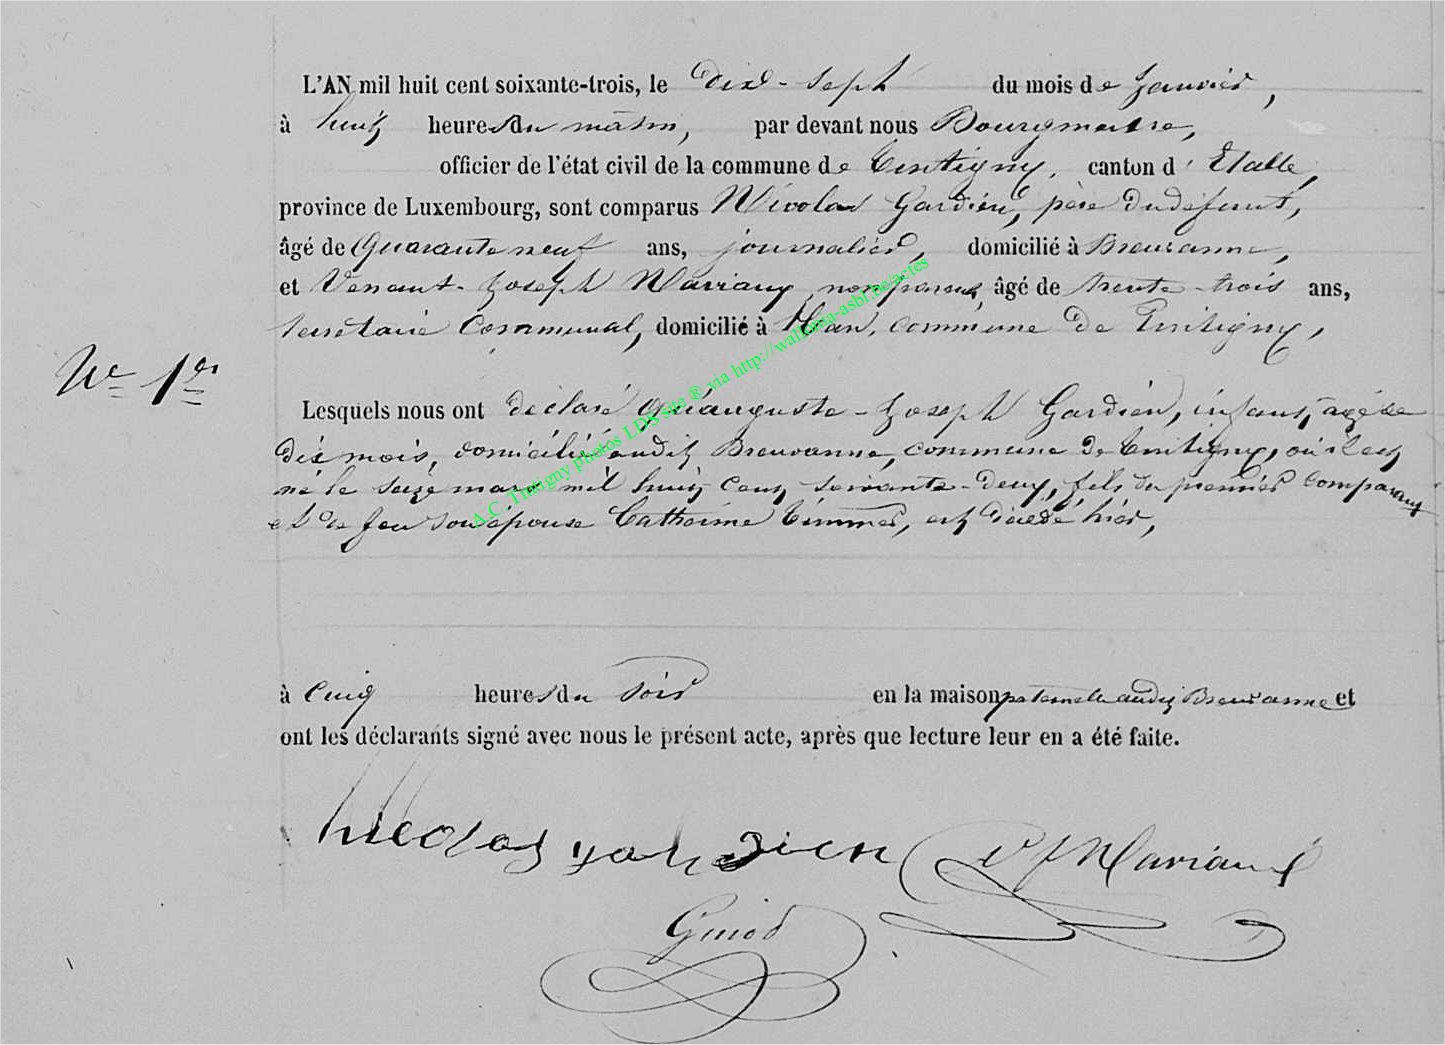 L'AN mil huit cent soixante-trois, le dix-sept du mois de Janvier,
à huit heures du matin, par devant nous Bourgmestre,
officier de l'état civil de la commune de Tintigny, canton d'Etalle,
province de Luxembourg, sont comparus Nicolas Gardien, père du défunt,
âgé de Quarante neuf ans, journalier, domicilié à Breuvanne,
et Venant-Joseph non parent, âgé de trente-trois ans,
secrétaire Communal, domicilié à Han, commune de Tintigny,
Nº 1er
Lesquels nous ont déclaré qu'auguste-Joseph Gardien, enfant, agé de
dix mois, domicilié audit Breuvanne, commune de Tintigny, où il est
né le seize mars mil huit cent soixante-deux, fils du premier Comparant
et de feu son épouse Catherine est décédé hier,
à Cinq heures du soir en la maison paternelle audit Breuvanne et
ont les déclarants signé avec nous le présent acte, après que lecture leur en a été faite.
nicolas gardien
A.C. Tintigny photos LDS site ® via http://wallonia-asbl.be/actes